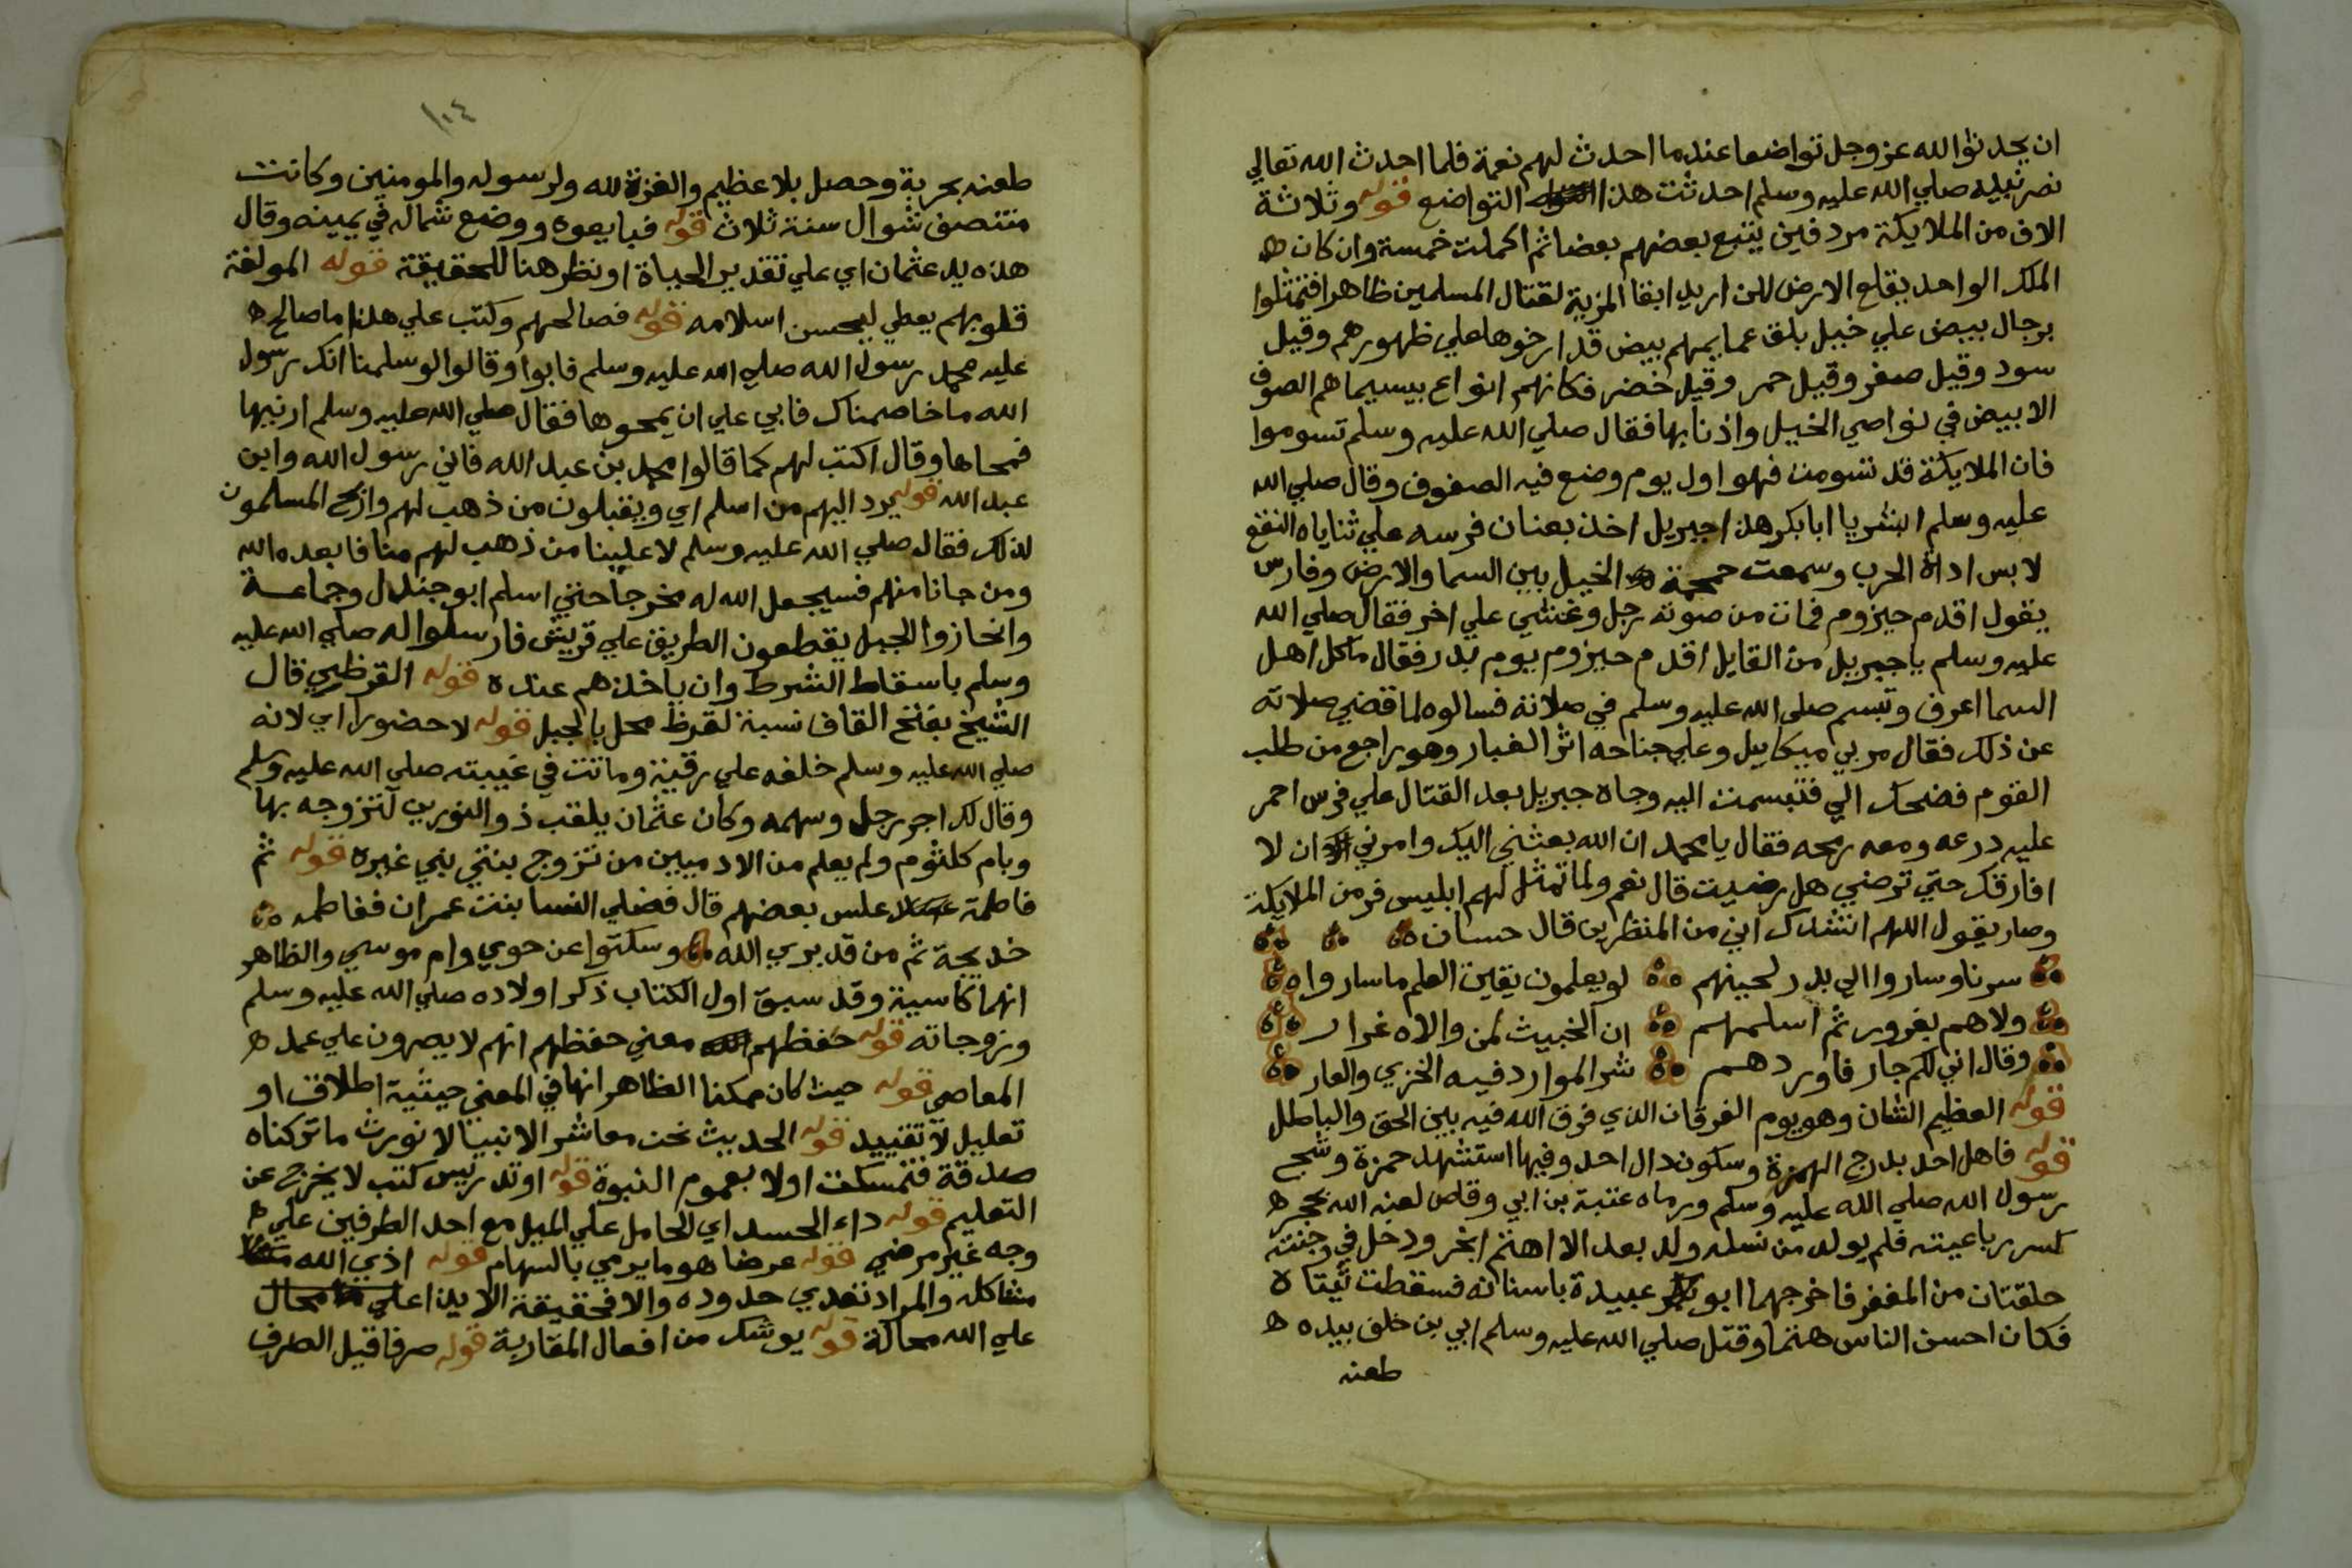 ان يحدثوا لله عز وجل تواضعا عندما احدث لهم نعمة فلما احدث الله تعالي
نصر نبيه صلي الله عليه وسلم احدثت هذا التواضع قوله وثلاثة
الاف من الملايكة مردفين يتبع بعضهم بعضا ثم اكملت خمسة وان كان
الملك الواحد يقلع الارض لكن اريد ابقا المزية لقتال المسلمين ظاهرا فتمثلوا
برجال بيض علي خيل بلق عمايمهم بيض قد ارخوها علي ظهورهم وقيل
سود وقيل صفر وقيل حمر وقيل خضر فكانهم انواع بيسيماهم الصوف
الابيض في نواصي الخيل واذنابها فقال صلي الله عليه وسلم تسوموا
فان الملايكة قد تسومت فهو اول يوم وضع فيه الصفوف وقال صلي الله
عليه وسلم ابشر يا ابا بكر هذا جبريل اخذ بعنان فرسه علي ثناياه النقع
لابس اداة الحرب وسمعت حمحمة الخيل بين السما والارض وفارس
يقول اقدم حيزوم فمات من صوته رجل وغشي علي اخر فقال صلي الله
عليه وسلم يا جبريل من القايل اقدم حيزوم يوم بدر فقال ما كل اهل
السما اعرف وتبسم صلي الله عليه وسلم في صلاته فسالوه لما قضي صلاته
عن ذلك فقال مر بي ميكاييل وعلي جناحه اثر الغبار وهو راجع من طلب
القوم فضحك الي فتبسمت اليه وجاه جبريل بعد القتال علي فرس احمر
عليه درعه ومعه رمحه فقال يا محمد ان الله بعثني اليك وامرني ان لا
افارقك حتي ترضي هل رضيت قال نعم ولما تمثل لهم ابليس فر من الملايكة
وصار يقول اللهم انشدك اني من المنظرين قال حسان
سرنا وساروا الي بدر لحينهم لو يعلمون يقين العلم ما ساروا
ولاهم بغرور ثم اسلمهم ان الخبيث لمن والاه غرار
وقال اني لكم جار فاوردهم شر الموارد فيه الخزي والعار
قوله العظيم الشان وهو يوم الفرقان الذي فرق الله فيه بين الحق والباطل
قوله فاهل احد بدرج الهمزة وسكون دال احد وفيها استشهد حمزة وشج
رسول الله صلي الله عليه وسلم ورماه عتبة بن ابي وقاص لعنه الله بحجر
كسر رباعيته فلم يولد من نسله ولد بعد الا اهتم ابخر ودخل في وجنته
حلقتان من المغفر فاخرجهما ابو عبيدة باسنانه فسقطت ثيتاه
فكان احسن الناس هتما وقتل صلي الله عليه وسلم ابي بن خلف بيده
طعنه
١٠٤
طعنه بحربة وحصل بلا عظيم والعزة لله ولرسوله والمومنين وكانت
منتصف شوال سنة ثلاث قوله فبايعوه ووضع شماله في يمينه وقال
هذه يد عثمان اي علي تقدير الحياة او نظر هنا للحقيقة قوله المولفة
قلوبهم يعطي ليحسن اسلامه قوله فصالحهم وكتب علي هذا ما صالح
عليه محمد رسول الله صلي الله عليه وسلم فابوا وقالوا لو سلمنا انك رسول
الله ما خاصمناك فابي علي ان يمحوها فقال صلي الله عليه وسلم ارنيها
فمحاها وقال اكتب لهم كما قالوا محمد بن عبد الله فاني رسول الله وابن
عبد الله قوله يرد اليهم من اسلم اي ويقبلون من ذهب لهم المسلمون
لذلك فقال صلي الله عليه وسلم لا علينا من ذهب لهم منا فابعده الله
ومن جانا منهم فسيجعل الله له مخرجا حتي اسلم ابو جندل وجماعة
وانحازوا لجبل يقطعون الطريق علي قريش فارسلوا له صلي الله عليه
وسلم باسقاط الشرط وان ياخذهم عنده قوله القرظي قال
الشيخ بفتح القاف نسبة لقرظ محل بالجبل قوله لا حضورا اي لانه
صلي الله عليه وسلم خلفه علي رقية وماتت في غيبته صلي الله عليه وسلم
وقال لك اجر رجل وسهمه وكان عثمان يلقب ذو النورين لتزوجه بها
وبام كلثوم ولم يعلم من الادميين من تزوج بنتي نبي غيره قوله ثم
فاطمة علس بعضهم قال فضلي النسا بنت عمران ففاطمه
خديجة ثم من قد بري الله وسكتوا عن حوي وام موسي والظاهر
انهما كاسية وقد سبق اول الكتاب ذكر اولاده صلي الله عليه وسلم
وزوجاته قوله حفظهم معني حفظهم انهم لا يصرون علي عمد
المعاصي قوله حيث كان ممكنا الظاهر انها في المعني حيثية اطلاق او
تعليل لا تقييد قوله الحديث نحن معاشر الانبيا لا نورث ما تركناه
صدقة فتمسكت اولا بعموم النبوة قوله او تدريس كتب لا يخرج عن
التعليم قوله داء الحسد اي الحامل علي الميل مع احد الطرفين علي
وجه غير مرضي قوله عرضا هو ما يرمي بالسهام قوله اذي الله
مشاكله والمراد تعدي حدوده والا فحقيقة الايذا علي محال
علي الله محالة قوله يوشك من افعال المقاربة قوله صرفا قيل الصرف